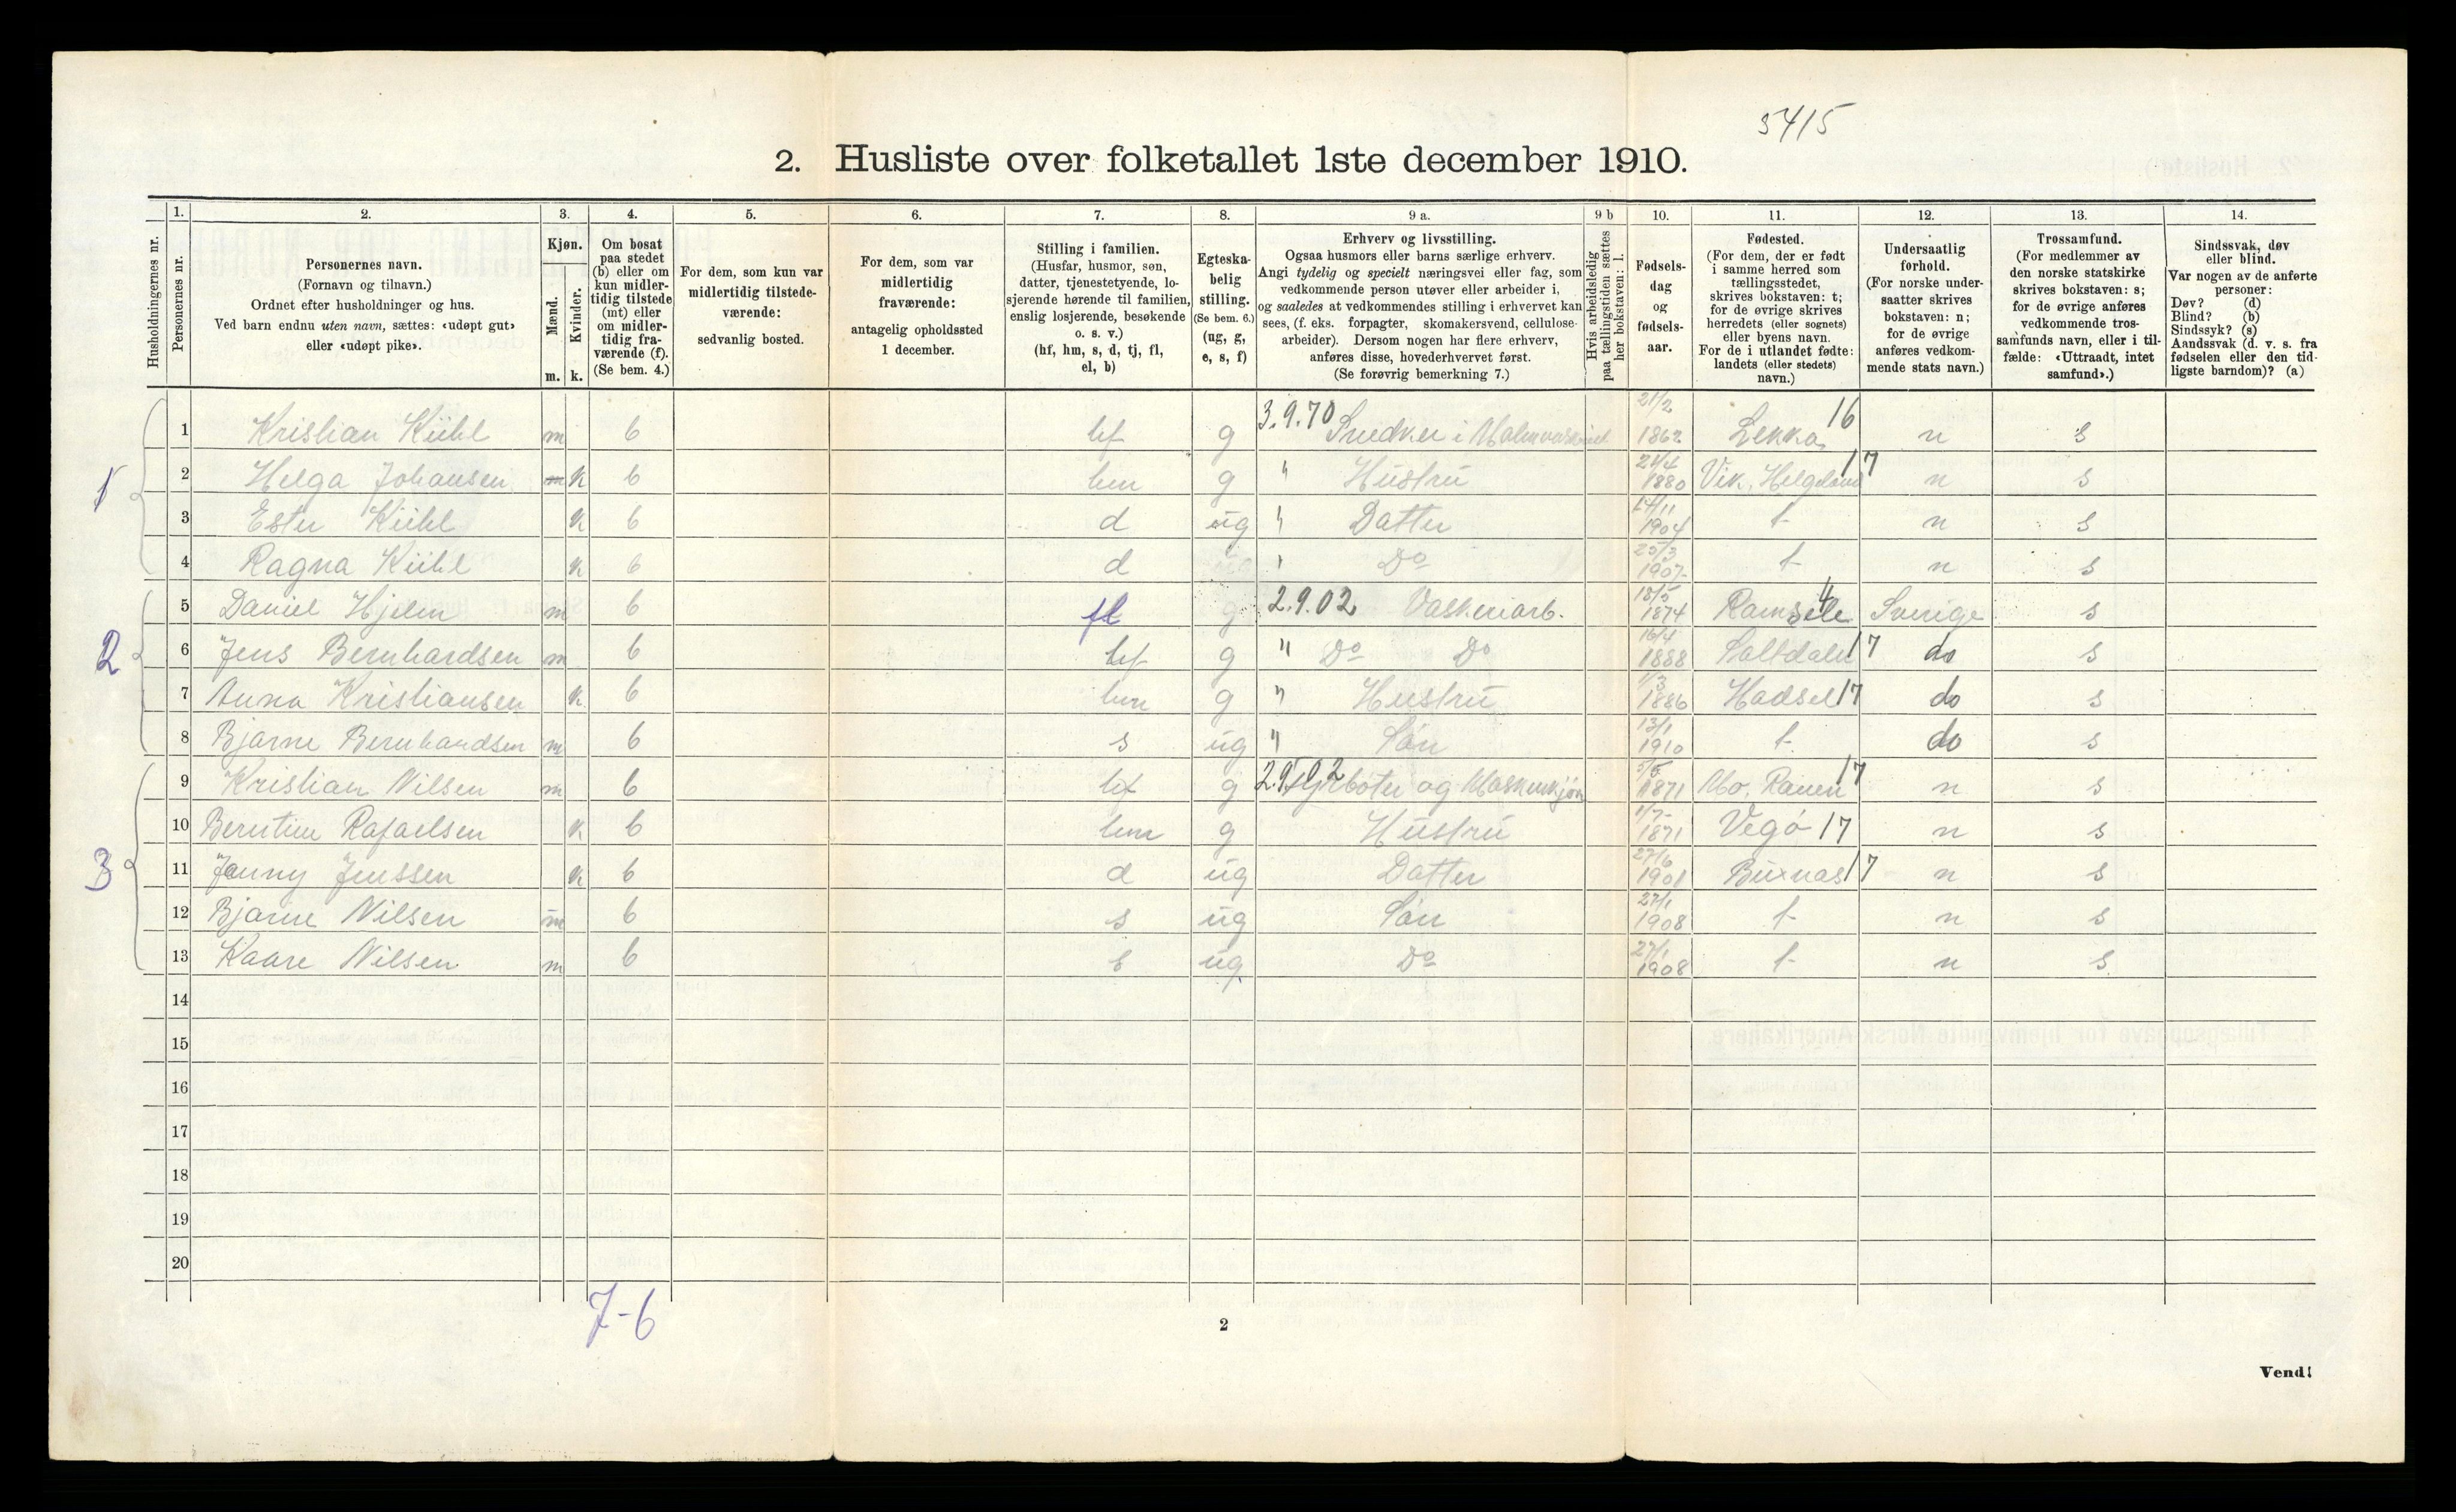 5415
2. Husliste over folketallet 1ste december 1910.
1. 2. 3. 4. 5. 6. 7. 8. 9 a. 9 b 10. 11. 12. 13. 14.
Husholdningernes nr.
Personernes nr.
Personernes navn.
(Fornavn og tilnavn.)
Ordnet efter husholdninger og hus.
Ved barn endnu uten navn, sættes: «udøpt gut»
eller «udøpt pike».
Kjøn.
Mænd.
Kvinder.
m. k.
Om bosat
paa stedet
(b) eller om
kun midler-
tidig tilstede
(mt) eller
om midler-
tidig fra-
værende (f).
(Se bem. 4.)
For dem, som kun var
midlertidig tilstede-
værende:
sedvanlig bosted.
For dem, som var
midlertidig
fraværende:
antagelig opholdssted
1 december.
Stilling i familien.
(Husfar, husmor, søn,
datter, tjenestetyende, lo-
sjerende hørende til familien,
enslig losjerende, besøkende
o. s. v.)
(hf, hm, s, d, tj, fl,
el, b)
Egteska-
belig
stilling.
(Se bem. 6.)
(ug, g,
e, s, f)
Erhverv og livsstilling.
Ogsaa husmors eller barns særlige erhverv.
Angi tydelig og specielt næringsvei eller fag, som
vedkommende person utøver eller arbeider i,
og saaledes at vedkommendes stilling i erhvervet kan
sees, (f. eks. forpagter, skomakersvend, cellulose-
arbeider). Dersom nogen har flere erhverv,
anføres disse, hovederhvervet først.
(Se forøvrig bemerkning 7.)
Hvis arbeidsledig
paa tællingstiden sættes
her bokstaven: l.
Fødsels-
dag
og
fødsels-
aar.
Fødested.
(For dem, der er født
i samme herred som
tællingsstedet,
skrives bokstaven: t;
for de øvrige skrives
herredets (eller sognets)
eller byens navn.
For de i utlandet fødte:
landets (eller stedets)
navn.)
Undersaatlig
forhold.
(For norske under-
saatter skrives
bokstaven: n;
for de øvrige
anføres vedkom-
mende stats navn.)
Trossamfund.
(For medlemmer av
den norske statskirke
skrives bokstaven: s;
for de øvrige anføres
vedkommende tros-
samfunds navn, eller i til-
fælde: «Uttraadt, intet
samfund».)
Sindssvak, døv
eller blind.
Var nogen av de anførte
personer:
Døv? (d)
Blind? (b)
Sindssyk? (s)
Aandssvak (d. v. s. fra
fødselen eller den tid-
ligste barndom)? (a)
1 1 Kristian Kühl m b hf g 3.9.70 Snedker i 21/2 1862 Lekka 16 n s
2 Helga Johansen m k b hm g " Hustru 21/4 1880 Vik, Helgeland 17 n s
3 Ester Kühl k b d ug " Datter 14/11 1904 t n s
4 Ragna Kühl k b d ug " Do 25/3 1907 t n s
2 5 Daniel Hjelm m b fl g 2.9.02 Vaskeriarb. 18/5 1874 Ramsele 4 Sverige s
6 Jens Bernhardsen m b hf g " Do Do 16/4 1888 Saltdalen 17 do s
7 Anna Kristiansen k b hm g " Hustru 1/3 1886 Hadsel 17 do s
8 Bjarne Bernhardsen m b s ug " Søn 13/1 1910 t do s
3 9 Kristian Nilsen m b hf g Fyrbøter og 5/5 1871 Mo, Ranen 17 n s
10 Berntine Rafaelsen k b hm g Hustru 1/7 1871 Vegø 17 n s
11 Jenny Jenssen k b d ug Datter 27/6 1901 Buxnas 17 n s
12 Bjarne Nilsen m b s ug Søn 27/1 1908 t n s
13 Kaare Nilsen m b ug Do 27/1 1908 t n s
14
15
16
17
18
19
20
7-6
2
Vend!